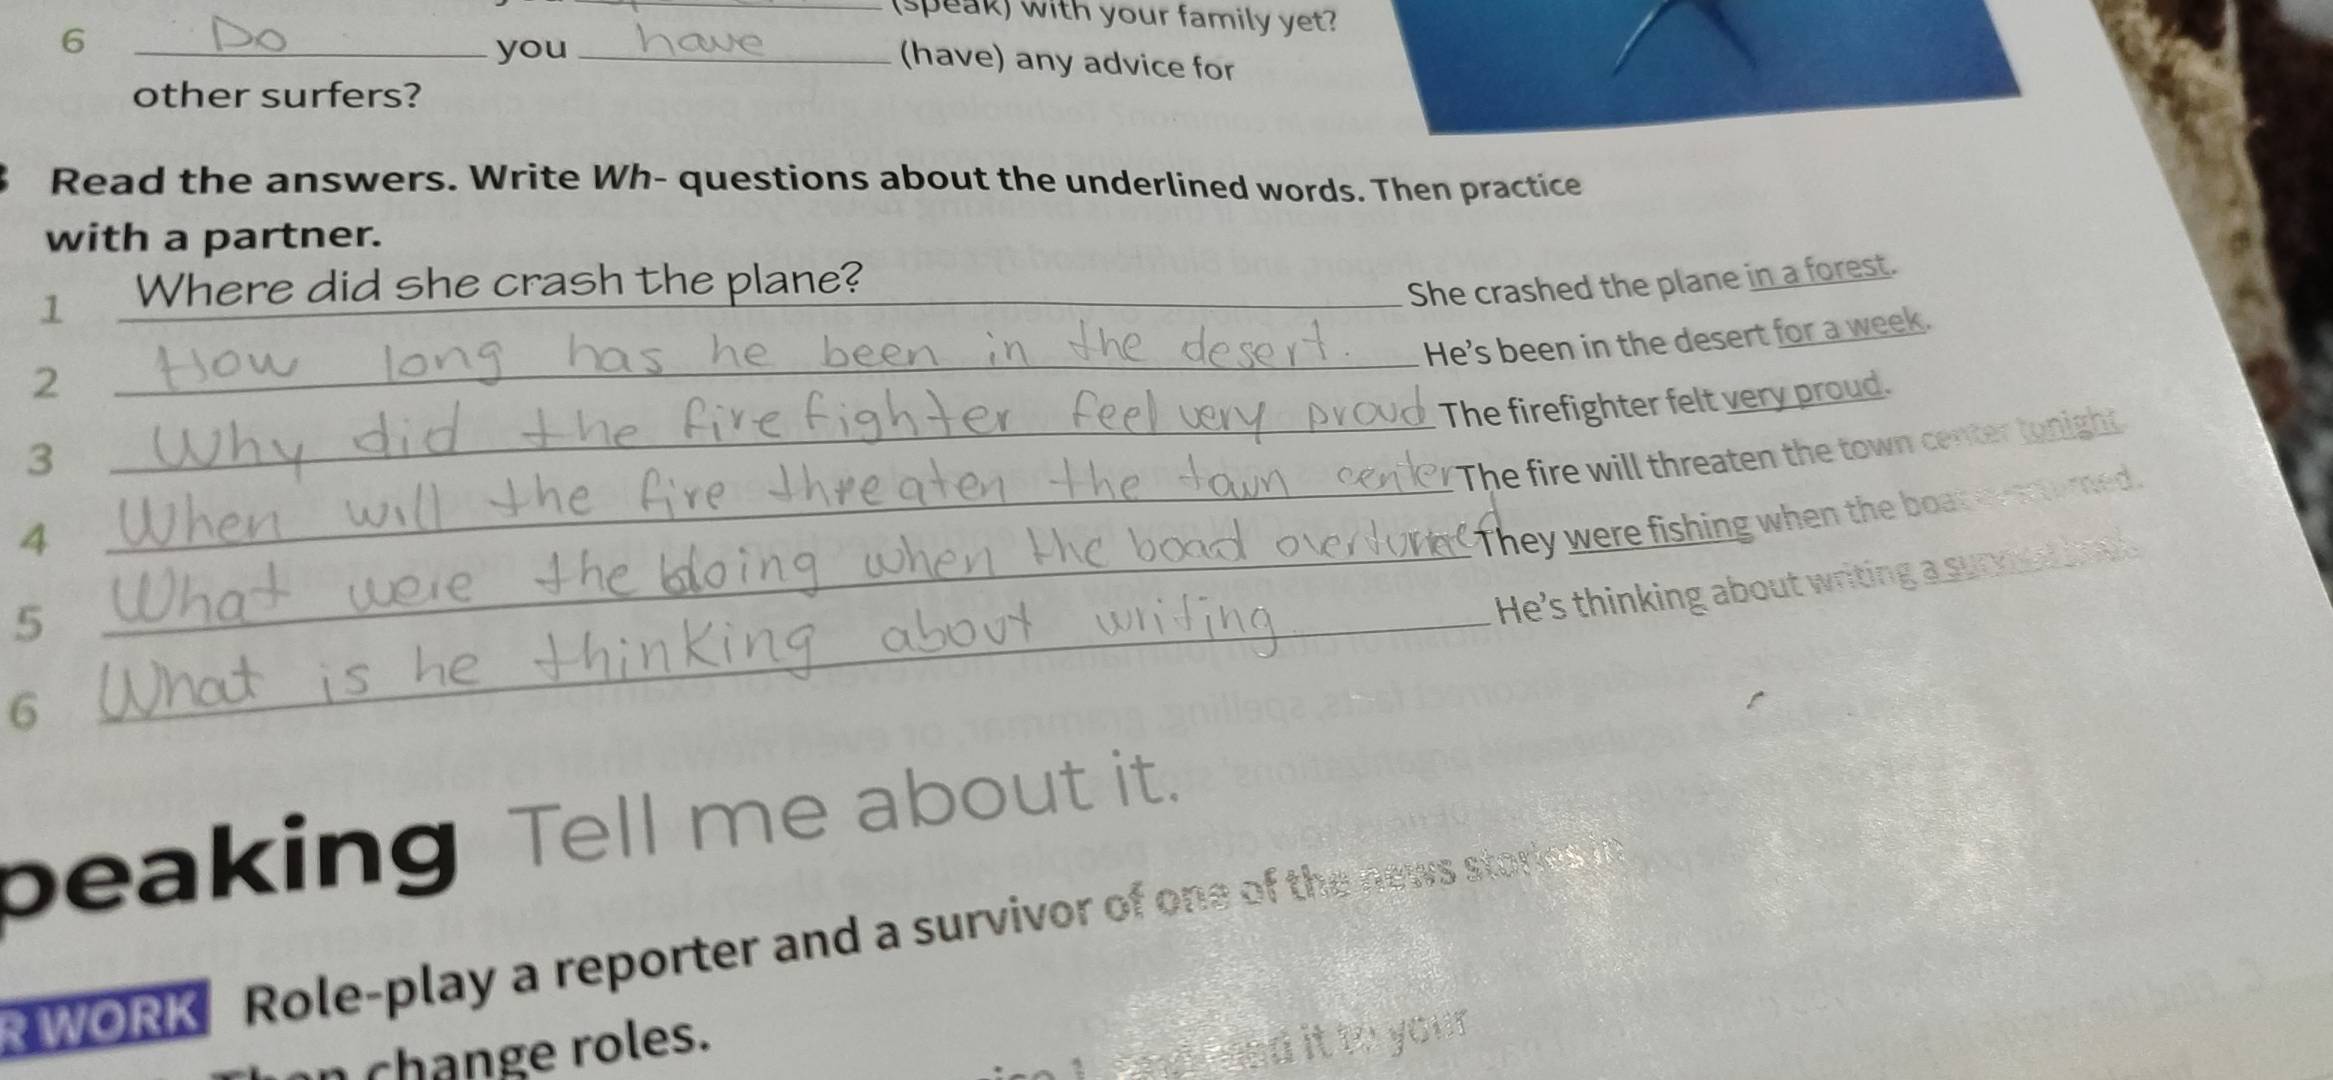 (speak) with your family yet?
6 Do you have (have) any advice for
other surfers?
Read the answers. Write Wh- questions about the underlined words. Then practice
with a partner.
1 Where did she crash the plane? She crashed the plane in a forest.
2 How long has he been in the desert. He's been in the desert for a week.
3 Why did the firefighter feel very proud The firefighter felt very proud.
4 When will the fire threaten the town center The fire will threaten the town center tonight
5 What were the doing when the boad overturned They were fishing when the boat
6 What is he thinking about writing He's thinking about writing a
peaking Tell me about it.
R WORK Role-play a reporter and a survivor of one of the news stories in
change roles.
it to your